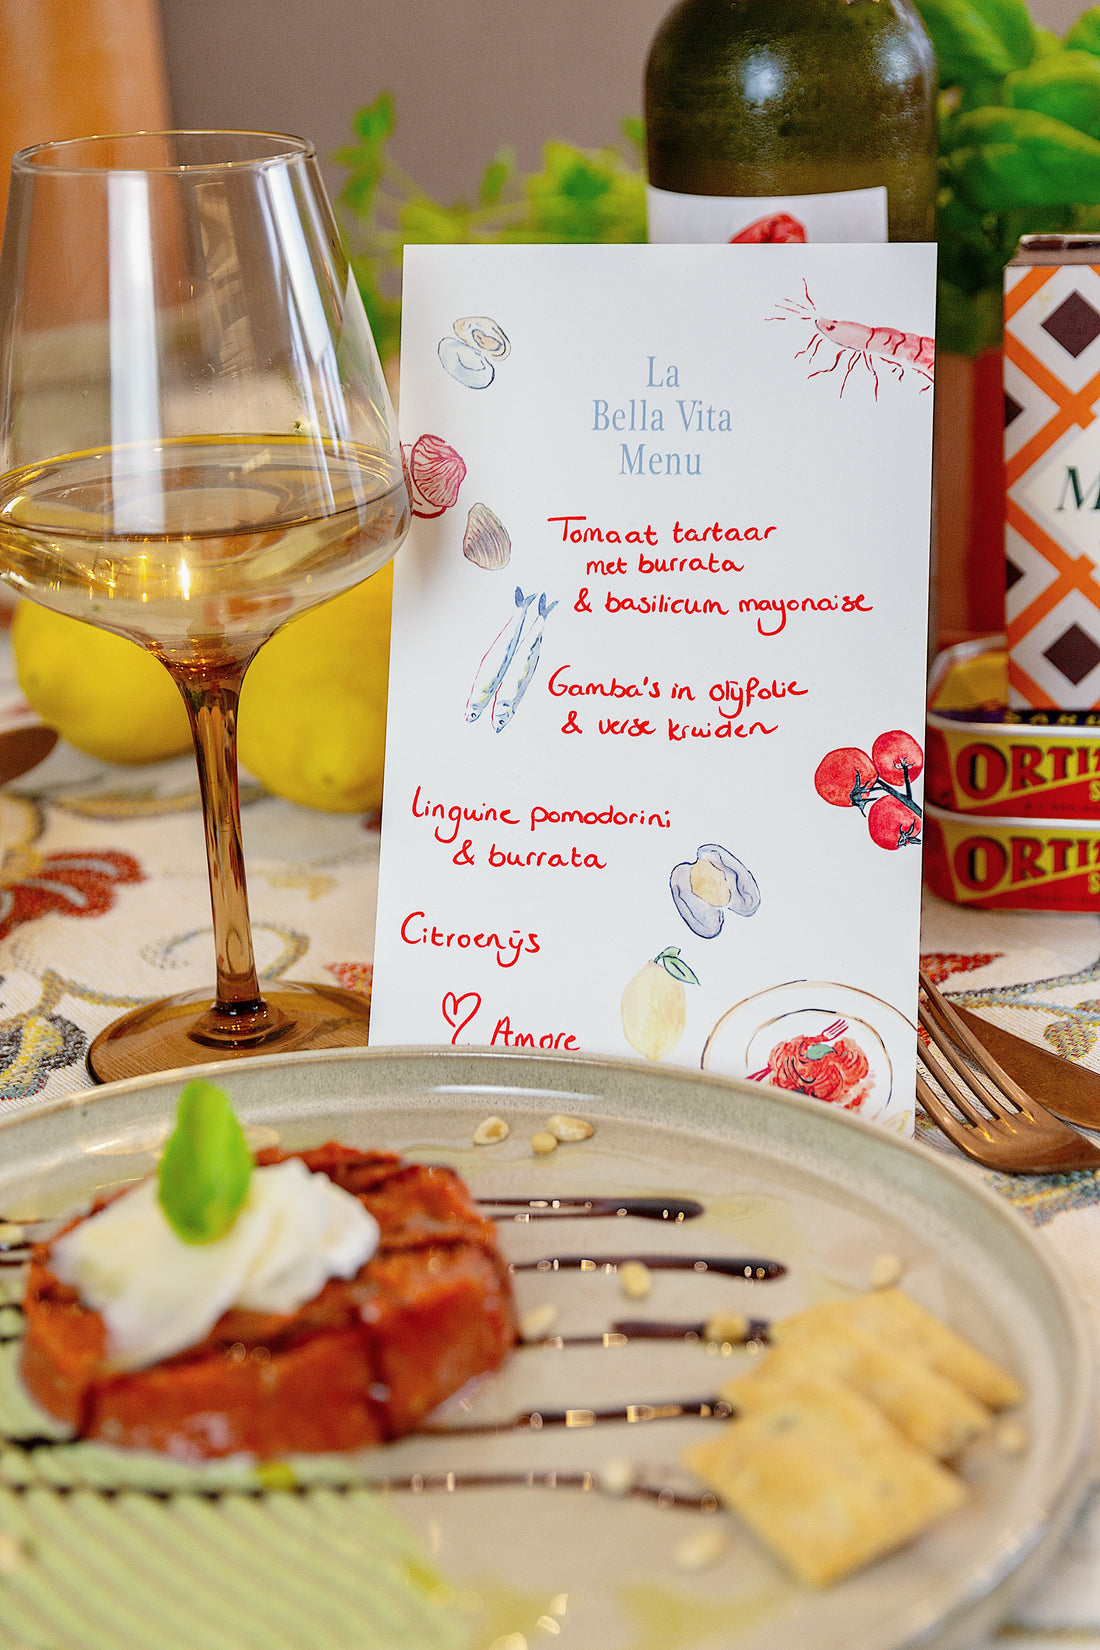 La
Bella Vita
Menu
Tomaat tartaar
met burrata
& basilicum mayonaise
Gamba's in olijfolie
& verse kruiden
Linguine pomodorini
& burrata
Citroenijs
Amore
ORTI
ORTI